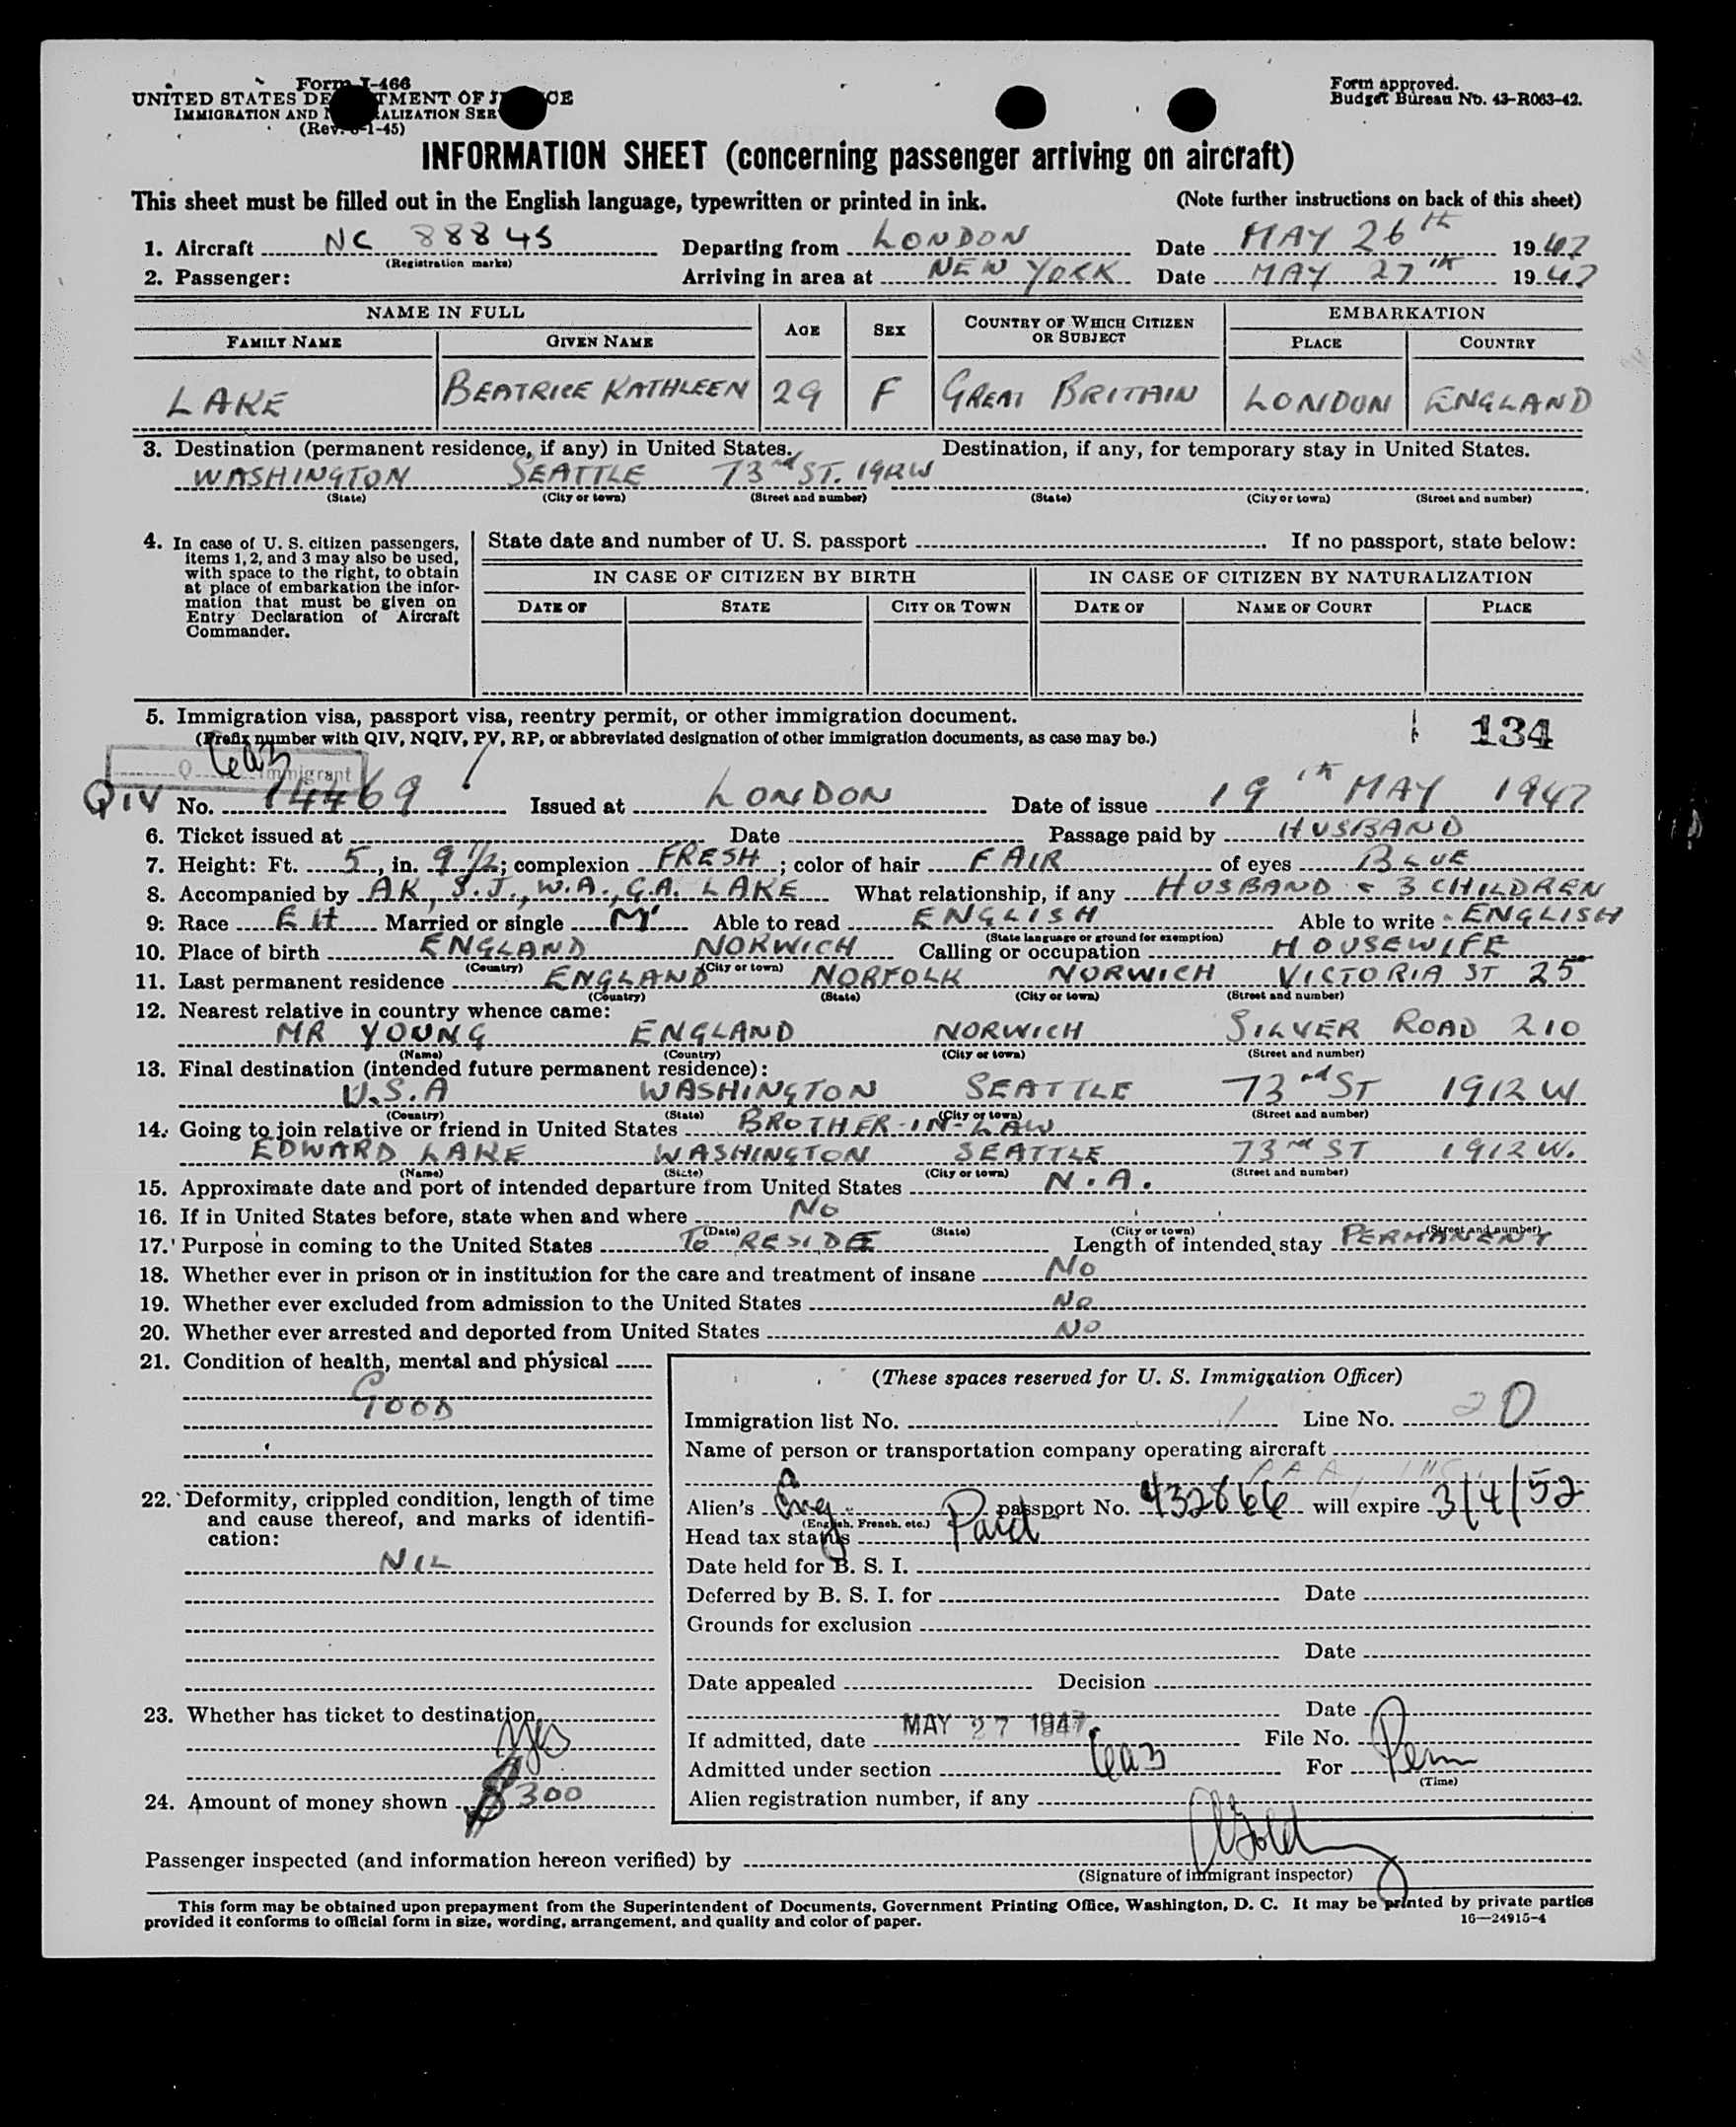 Form I-466
UNITED STATES DE TMENT OF J CE
IMMIGRATION AND N ALIZATION SER
(Rev. 6-1-45)
Form approved.
Budget Bureau No. 43-R063-42.
INFORMATION SHEET (concerning passenger arriving on aircraft)
This sheet must be filled out in the English language, typewritten or printed in ink. (Note further instructions on back of this sheet)
1. Aircraft NC 88845 Departing from LONDON Date MAY 26th 1947
(Registration marks)
2. Passenger: Arriving in area at NEW YORK Date MAY 27th 1947
NAME IN FULL AGE SEX COUNTRY OF WHICH CITIZEN OR SUBJECT EMBARKATION
FAMILY NAME GIVEN NAME PLACE COUNTRY
LAKE BEATRICE KATHLEEN 29 F GREAT BRITAIN LONDON ENGLAND
3. Destination (permanent residence, if any) in United States. Destination, if any, for temporary stay in United States.
WASHINGTON SEATTLE 73rd ST. 1912W
(State) (City or town) (Street and number) (State) (City or town) (Street and number)
4. In case of U. S. citizen passengers,
items 1, 2, and 3 may also be used,
with space to the right, to obtain
at place of embarkation the infor-
mation that must be given on
Entry Declaration of Aircraft
Commander.
State date and number of U. S. passport If no passport, state below:
IN CASE OF CITIZEN BY BIRTH IN CASE OF CITIZEN BY NATURALIZATION
DATE OF STATE CITY OR TOWN DATE OF NAME OF COURT PLACE
5. Immigration visa, passport visa, reentry permit, or other immigration document.
(Prefix number with QIV, NQIV, PV, RP, or abbreviated designation of other immigration documents, as case may be.)
134
6a3
Q Immigrant
QIV No. 14469 Issued at LONDON Date of issue 19th MAY 1947
6. Ticket issued at Date Passage paid by HUSBAND
7. Height: Ft. 5, in. 9 1/2; complexion FRESH; color of hair FAIR of eyes BLUE
8. Accompanied by AK, S.J., W.A., G.A. LAKE What relationship, if any HUSBAND & 3 CHILDREN
9. Race EH Married or single M Able to read ENGLISH Able to write ENGLISH
(State language or ground for exemption)
10. Place of birth ENGLAND NORWICH Calling or occupation HOUSEWIFE
(Country) (City or town)
11. Last permanent residence ENGLAND NORFOLK NORWICH VICTORIA ST 25
(Country) (State) (City or town) (Street and number)
12. Nearest relative in country whence came:
MR YOUNG ENGLAND NORWICH SILVER ROAD 210
(Name) (Country) (City or town) (Street and number)
13. Final destination (intended future permanent residence):
U.S.A WASHINGTON SEATTLE 73rd ST 1912 W
(Country) (State) (City or town) (Street and number)
14. Going to join relative or friend in United States BROTHER-IN-LAW
EDWARD LAKE WASHINGTON SEATTLE 73rd ST 1912 W.
(Name) (State) (City or town) (Street and number)
15. Approximate date and port of intended departure from United States N.A.
16. If in United States before, state when and where No
(Date) (State) (City or town) (Street and number)
17. Purpose in coming to the United States To RESIDE Length of intended stay PERMANENT
18. Whether ever in prison or in institution for the care and treatment of insane No
19. Whether ever excluded from admission to the United States No
20. Whether ever arrested and deported from United States No
21. Condition of health, mental and physical
GOOD
22. Deformity, crippled condition, length of time
and cause thereof, and marks of identifi-
cation:
NIL
23. Whether has ticket to destination
Yes
24. Amount of money shown $300
(These spaces reserved for U. S. Immigration Officer)
Immigration list No. 1 Line No. 20
Name of person or transportation company operating aircraft
P.A.A. INC.
Alien's Eng passport No. 432866 will expire 3/4/52
(English, French, etc.)
Head tax status Paid
Date held for B. S. I.
Deferred by B. S. I. for Date
Grounds for exclusion
Date
Date appealed Decision
Date
If admitted, date MAY 27 1947 File No.
Admitted under section 6a3 For Perm
(Time)
Alien registration number, if any
Passenger inspected (and information hereon verified) by
(Signature of immigrant inspector)
This form may be obtained upon prepayment from the Superintendent of Documents, Government Printing Office, Washington, D. C. It may be printed by private parties
provided it conforms to official form in size, wording, arrangement, and quality and color of paper. 16—24915-4